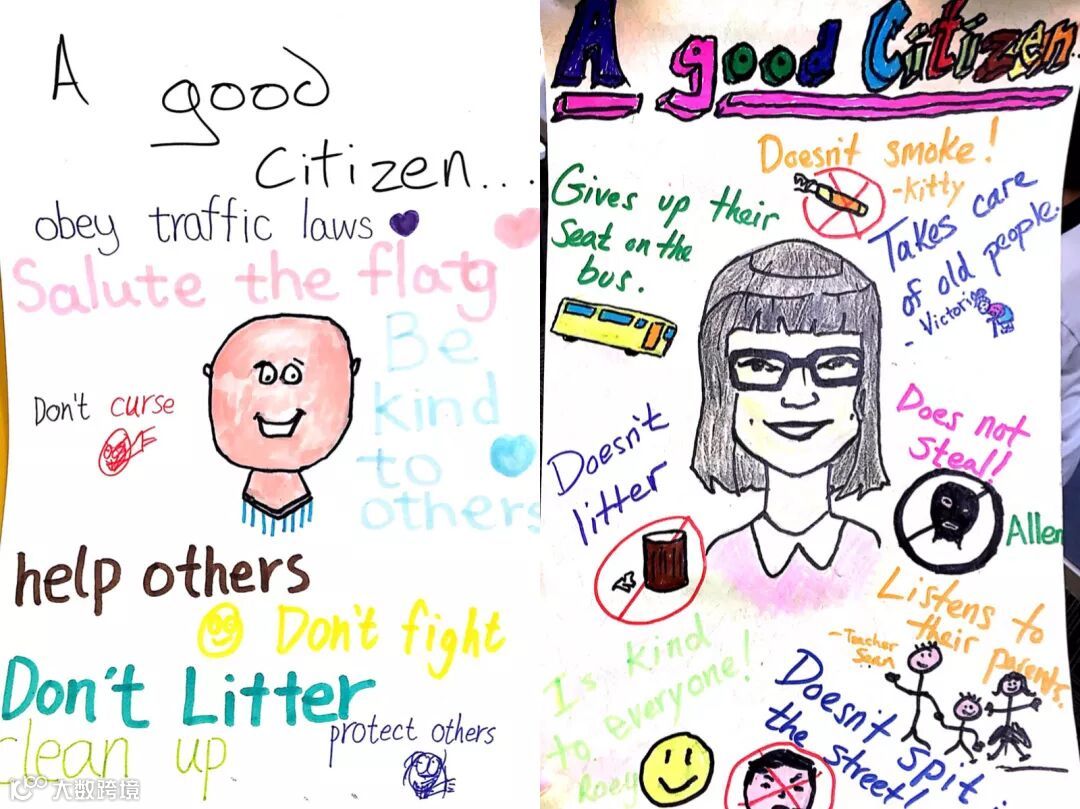 A
good
citizen...
obey traffic laws
Salute the flag
Be
kind
to
others
Don't curse
help others
Don't fight
Don't Litter
clean up
protect others
大数跨境
A good Citizen...
Doesn't smoke!
-Kitty
Gives up their
seat on the
bus.
Takes care
of old people.
- Victoria
Doesn't
litter
Does not
steal!
Allen
Listens to
their parents.
-Teacher
Sean
Is kind
to everyone!
Roey
Doesn't spit
the street!